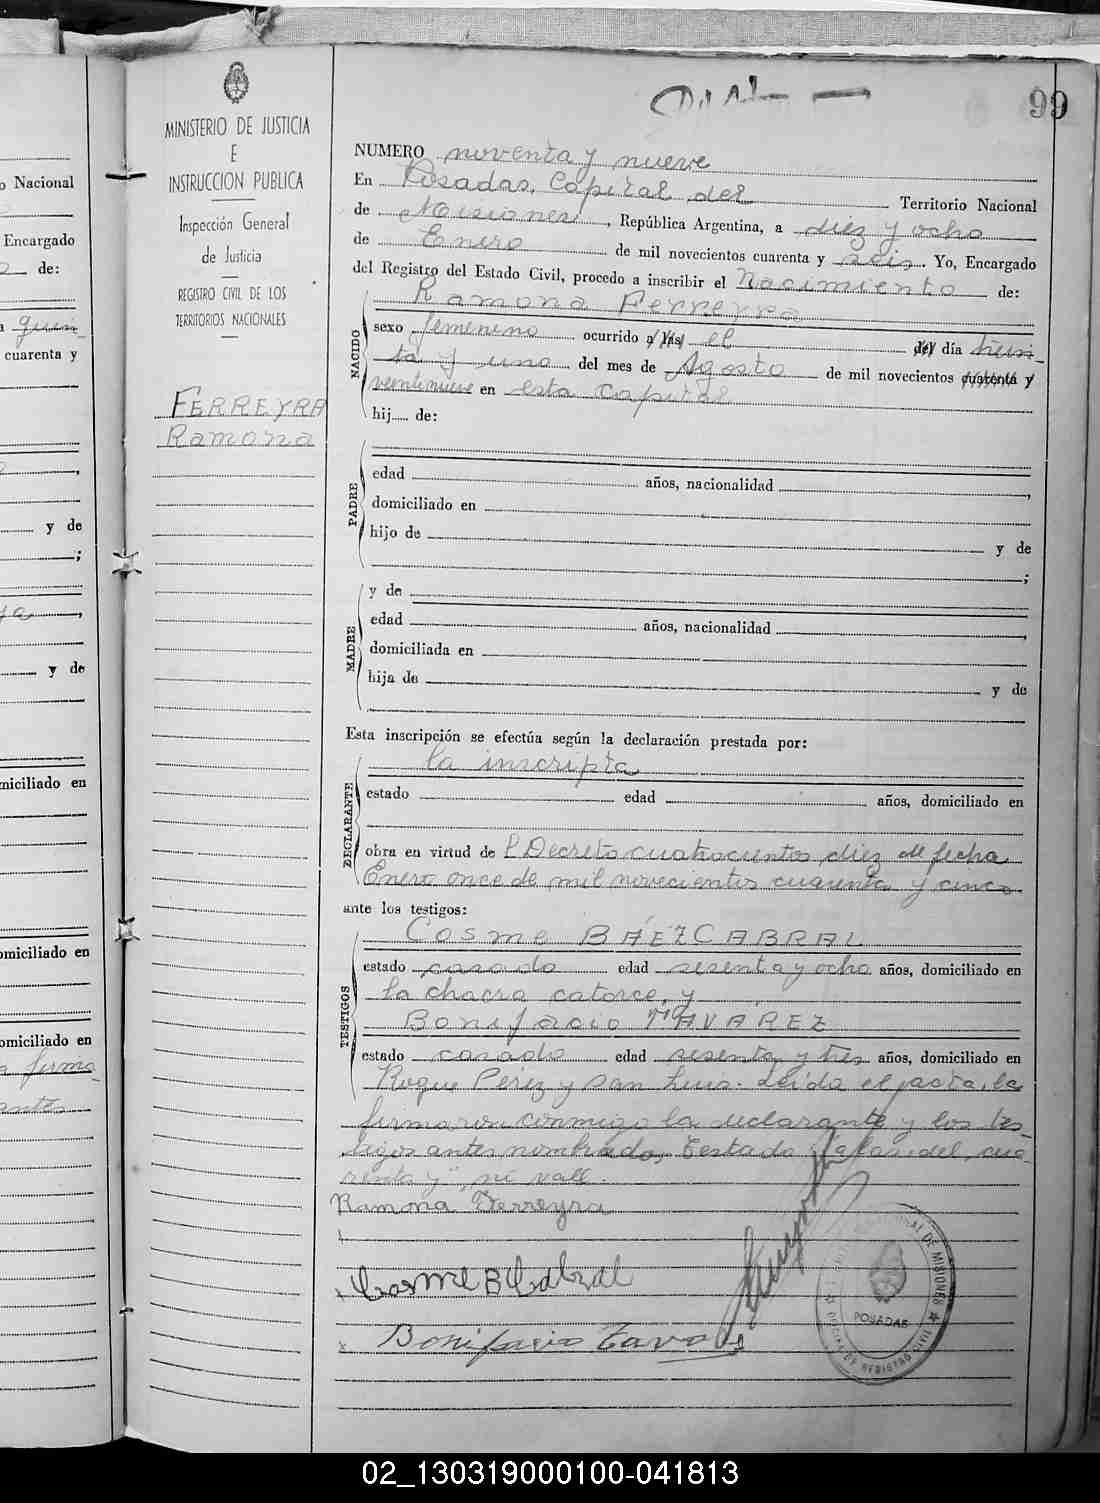 99
MINISTERIO DE JUSTICIA
E
INSTRUCCION PUBLICA
Inspección General
de Justicia
REGISTRO CIVIL DE LOS
TERRITORIOS NACIONALES
FERREYRA
Ramona
NUMERO noventa y nueve
En Posadas, Capital del Territorio Nacional
de Misiones, República Argentina, a diez y ocho
de Enero de mil novecientos cuarenta y seis. Yo, Encargado
del Registro del Estado Civil, procedo a inscribir el Nacimiento de:
Ramona Ferreyra
NACIDO
sexo femenino ocurrido a las el del día trein-
ta y uno del mes de Agosto de mil novecientos cuarenta y
veintinueve en esta Capital
hij de:
PADRE
edad años, nacionalidad ,
domiciliado en
hijo de y de
;
MADRE
y de
edad años, nacionalidad ,
domiciliada en
hija de y de
Esta inscripción se efectúa según la declaración prestada por:
la inscripta
DECLARANTE
estado edad años, domiciliado en
obra en virtud de l Decreto cuatrocientos diez de fecha
Enero once de mil novecientos cuarenta y cinco
ante los testigos:
TESTIGOS
Cosme BÁEZ CABRAL
estado casado edad sesenta y ocho años, domiciliado en
la chacra catorce, y
Bonifacio TAVAREZ
estado casado edad sesenta y tres años, domiciliado en
Roque Pérez y San Luis. Leída el acta, la
firmaron conmigo la declarante y los tes-
tigos antes nombrados. Testado "a las, del, cua-
renta y", no vale.
Ramona Ferreyra
Cosme B Cabral
Bonifacio Tavarez
DE MISIONES
POSADAS
o Nacional
Encargado
de:
cuarenta y
y de
;
y de
miciliado en
omiciliado en
omiciliado en
firma
02_130319000100-041813